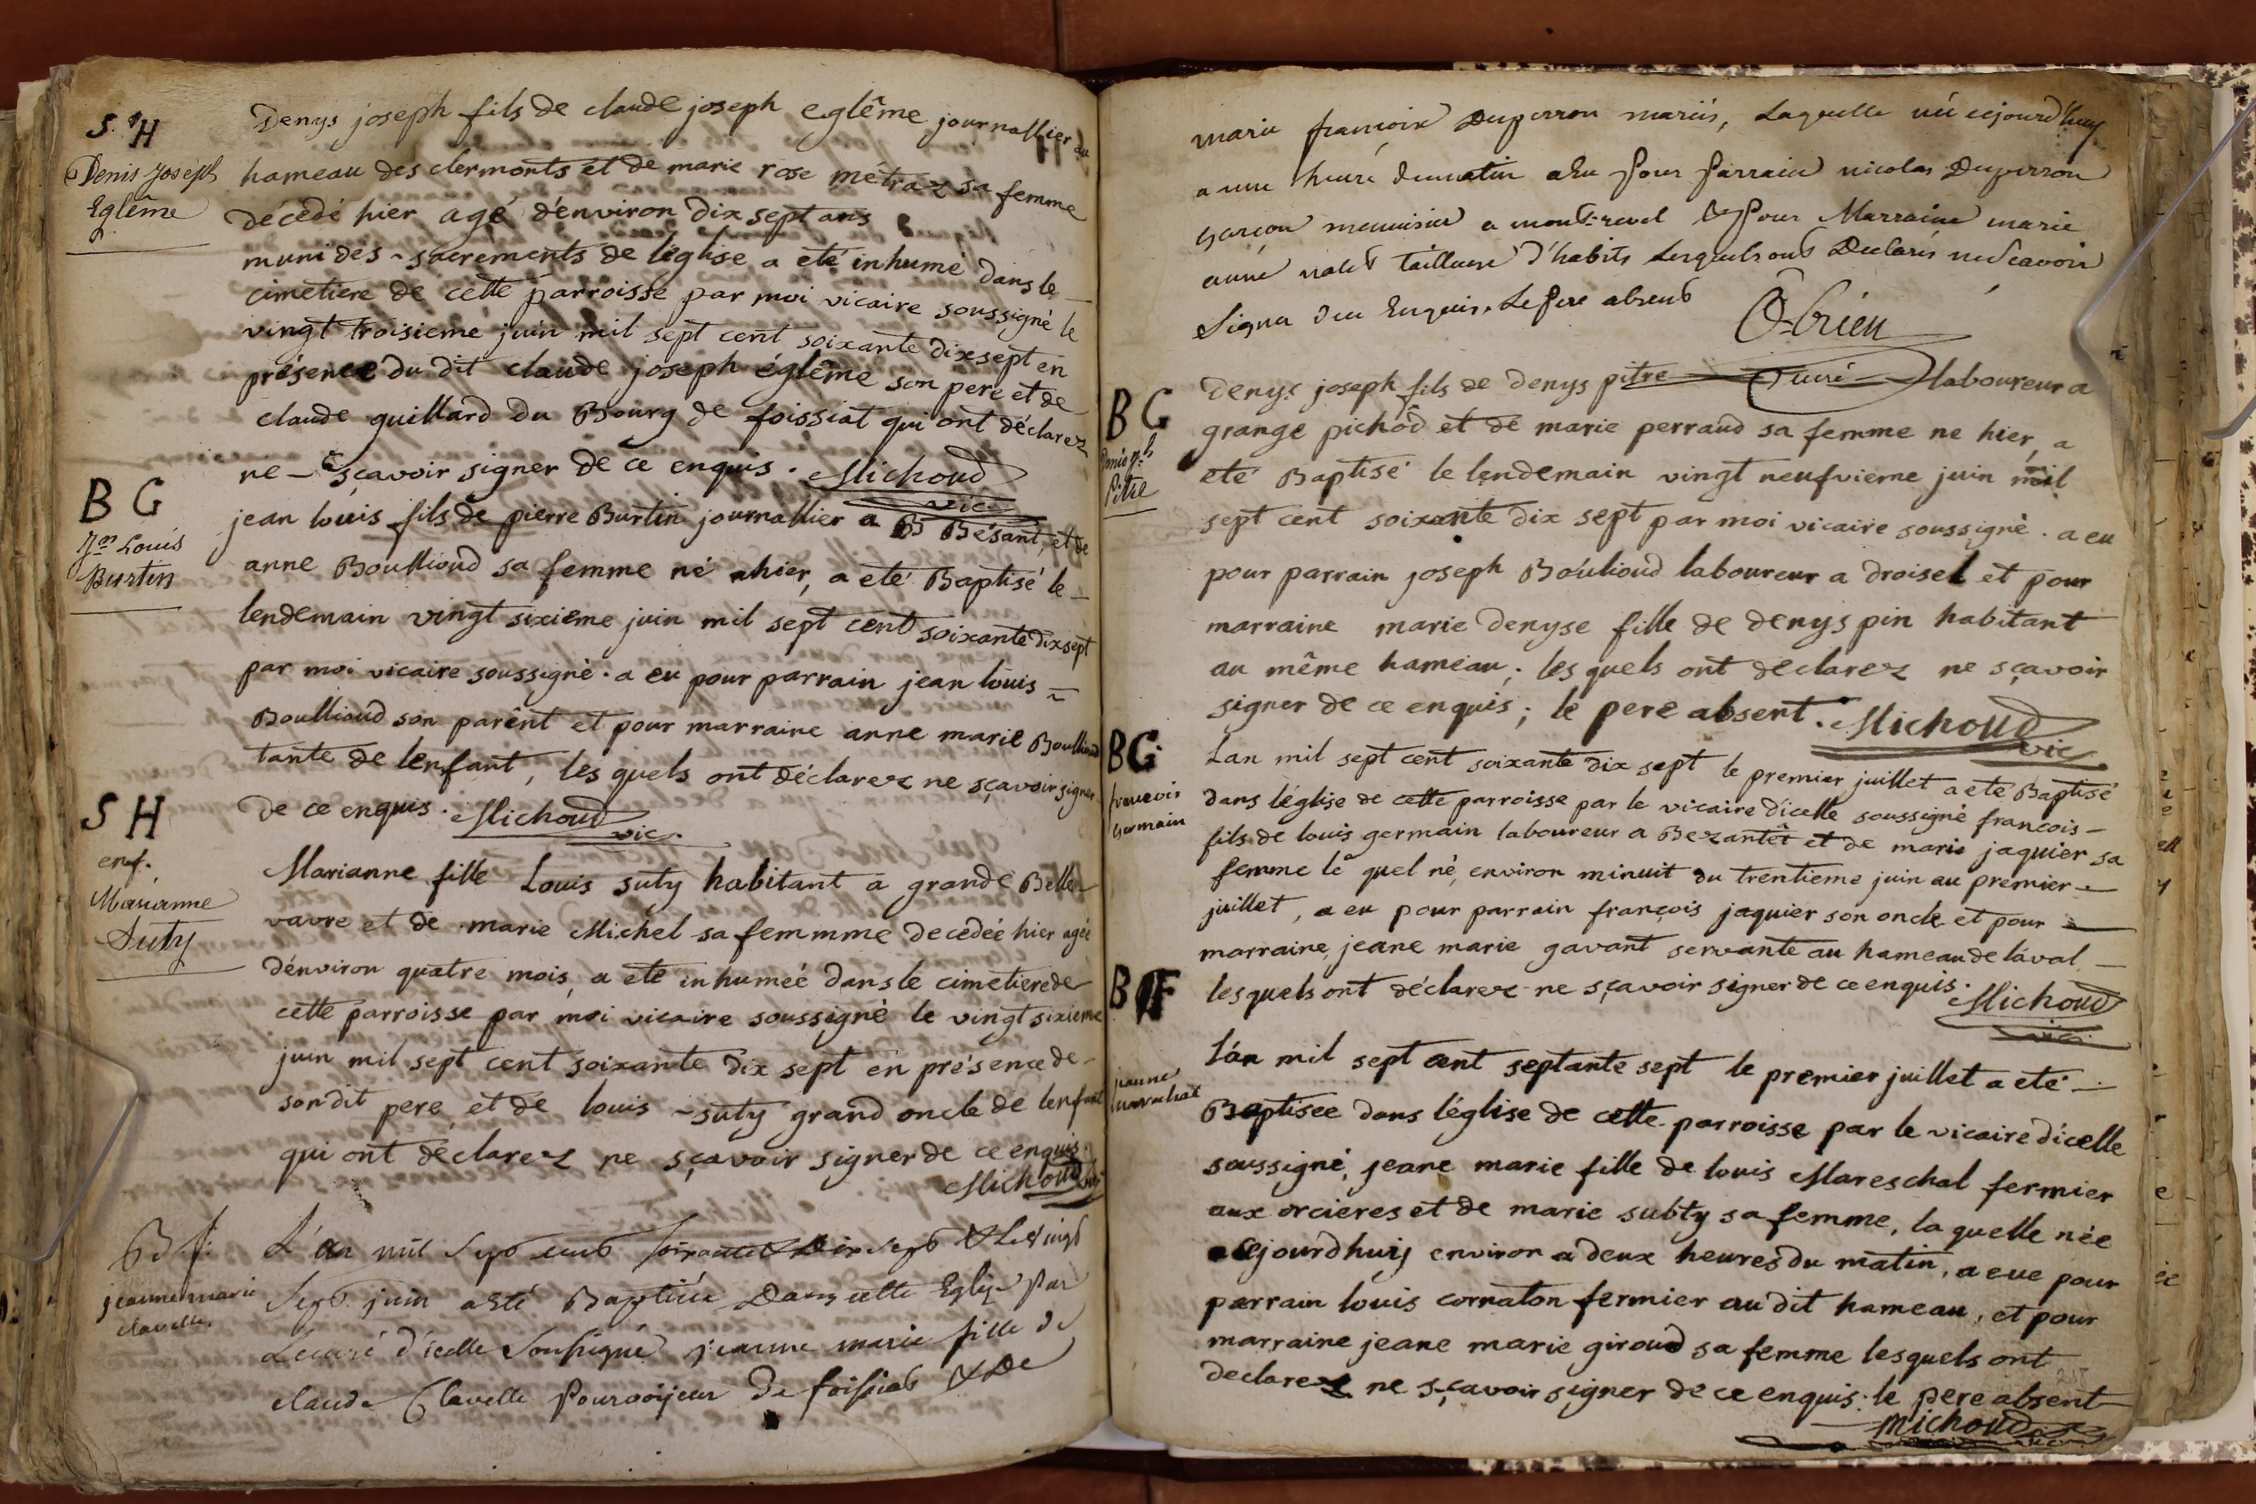 S. H
Denis Joseph
Eglême
Denys joseph fils de claude joseph eglême journallier au
hameau des clermonts et de marie rose métraz sa femme
décedé hier agé d'environ dix sept ans
muni des sacrements de léglise a eté inhumé dans le
cimetiere de cette parroisse par moi vicaire soussigné le
vingt troisieme juin mil sept cent soixante dix sept en
présence du dit claude joseph églême son pere et de
claude guillard du Bourg de foissiat qui ont déclarez
ne sçavoir signer de ce enquis. Michoud
vic.
B G
Jn Louis
Burtin
jean louis fils de pierre Burtin journallier a B Bésant, et de
anne Boullioud sa femme né hier, a eté Baptisé le
lendemain vingt sixieme juin mil sept cent soixante dix sept
par moi vicaire soussigné. a eu pour parrain jean louis
Boullioud son parênt et pour marraine anne marie Boullioud
tante de lenfant, les quels ont déclarez ne sçavoir signer
de ce enquis. Michoud
vic.
S H
enf.
Marianne
Suty
Marianne fille Louis suty habitant a grande Belle
vavre et de marie Michel sa femmme decedéé hier agéé
dénviron quatre mois, a eté inhumeé dans le cimetiere de
cette parroisse par moi vicaire soussigné le vingt sixieme
juin mil sept cent soixante dix sept en présence de
son dit pere et de louis suty grand oncle de lenfant
qui ont déclarez ne sçavoir signer de ce enquis.
Michoud vic
B f.
jeanne marie
clavelle
L'an mil sept cent soixante et Dix sept & le vingt
sept juin a Eté Baptisée Dans cette Eglise par
Le curé d'icelle soussigné jeanne marie fille de
claude Clavelle pourvoijeur De foissiat & De
marie francoise Duperron mariés, Laquelle née cejourd'huy
a une heure du matin a Eu pour parrain nicolas Duperron
garçon menuisier a mont-revel & pour Marraine marie
anne tailleuse d'habits Lesquels ont Declarés ne scavoir
Signer De ce Enquis, Le pere absent O-brien
curé
B G
Denis jph
pitre
Denys joseph fils de Denys pitre laboureur a
grange pichôd et de marie perraud sa femme ne hier, a
eté Baptisé le lendemain vingt neufvieme juin mil
sept cent soixante dix sept par moi vicaire soussigné. a eu
pour parrain joseph Boulioud laboureur a droisel et pour
marraine marie denyse fille de denys pin habitant
au même hameau; les quels ont declarez ne sçavoir
signer de ce enquis; le pere absent. Michoud
vic.
BG.
francois
Germain
Lan mil sept cent soixante dix sept le premier juillet a eté Baptisé
dans léglise de cette parroisse par le vicaire dicelle soussigné francois
fils de louis germain laboureur a Bezantêt et de marie jaquier sa
femme le quel né, environ minuit du trentieme juin au premier
juillet, a eu pour parrain françois jaquier son oncle et pour
marraine, jeane marie gavant servante au hameau de lával
lesquels ont déclarez ne sçavoir signer de ce enquis. Michoud
vic.
B F
jeanne
marechal
Lán mil sept cent septante sept le premier juillet a eté
Baptisee dans léglise de cette parroisse par le vicaire dícelle
soussigné, jeane marie fille de louis Mareschal fermier
aux orcieres et de marie subty sa femme, la quelle née
cejourdhuij environ a deux heures du matin, a eue pour
parrain louis cornaton fermier au dit hameau, et pour
marraine jeane marie giroud sa femme lesquels ont
declarez ne sçavoir signer de ce enquis. le pere absent
michoud
vic.